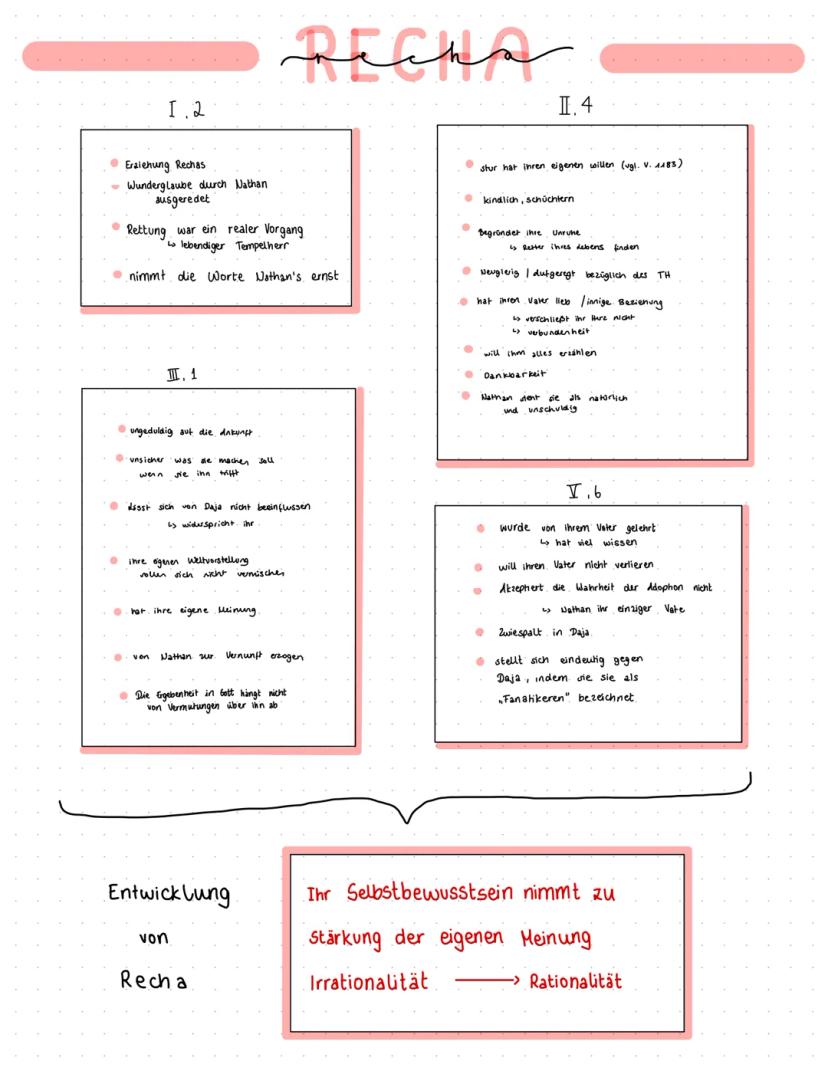 RECHA
recha
I.2
Erziehung Rechas
Wunderglaube durch Nathan
ausgeredet
Rettung war ein realer Vorgang
↳ lebendiger Tempelherr
nimmt die Worte Nathan's ernst
II.4
stur hat ihren eigenen willen (vgl. V. 1183)
kindlich, schüchtern
Begründet ihre Unruhe
↳ Retter ihres Lebens finden
Neugierig / Aufgeregt bezüglich des TH
hat ihren Vater lieb / innige Beziehung
↳ verschließt ihr Herz nicht
↳ verbundenheit
will ihm alles erzählen
Dankbarkeit
Nathan sieht sie als natürlich
und unschuldig
III.1
ungeduldig auf die Ankunft
unsicher was sie machen soll
wenn sie ihn trifft
lässt sich von Daja nicht beeinflussen
↳ widerspricht ihr
ihre eigenen Weltvorstellung
sollen sich nicht vermischen
hat ihre eigene Meinung
von Nathan zur Vernunft erzogen
Die Ergebenheit in Gott hängt nicht
von Vermutungen über ihn ab
V.6
wurde von ihrem Vater gelehrt
↳ hat viel wissen
will ihren Vater nicht verlieren
Akzeptiert die Wahrheit der Adophon nicht
↳ Nathan ihr einziger Vate
Zwiespalt in Daja
stellt sich eindeutig gegen
Daja, indem sie sie als
„Fanatikeren" bezeichnet
Entwicklung
von
Recha
Ihr Selbstbewusstsein nimmt zu
Stärkung der eigenen Meinung
Irrationalität → Rationalität